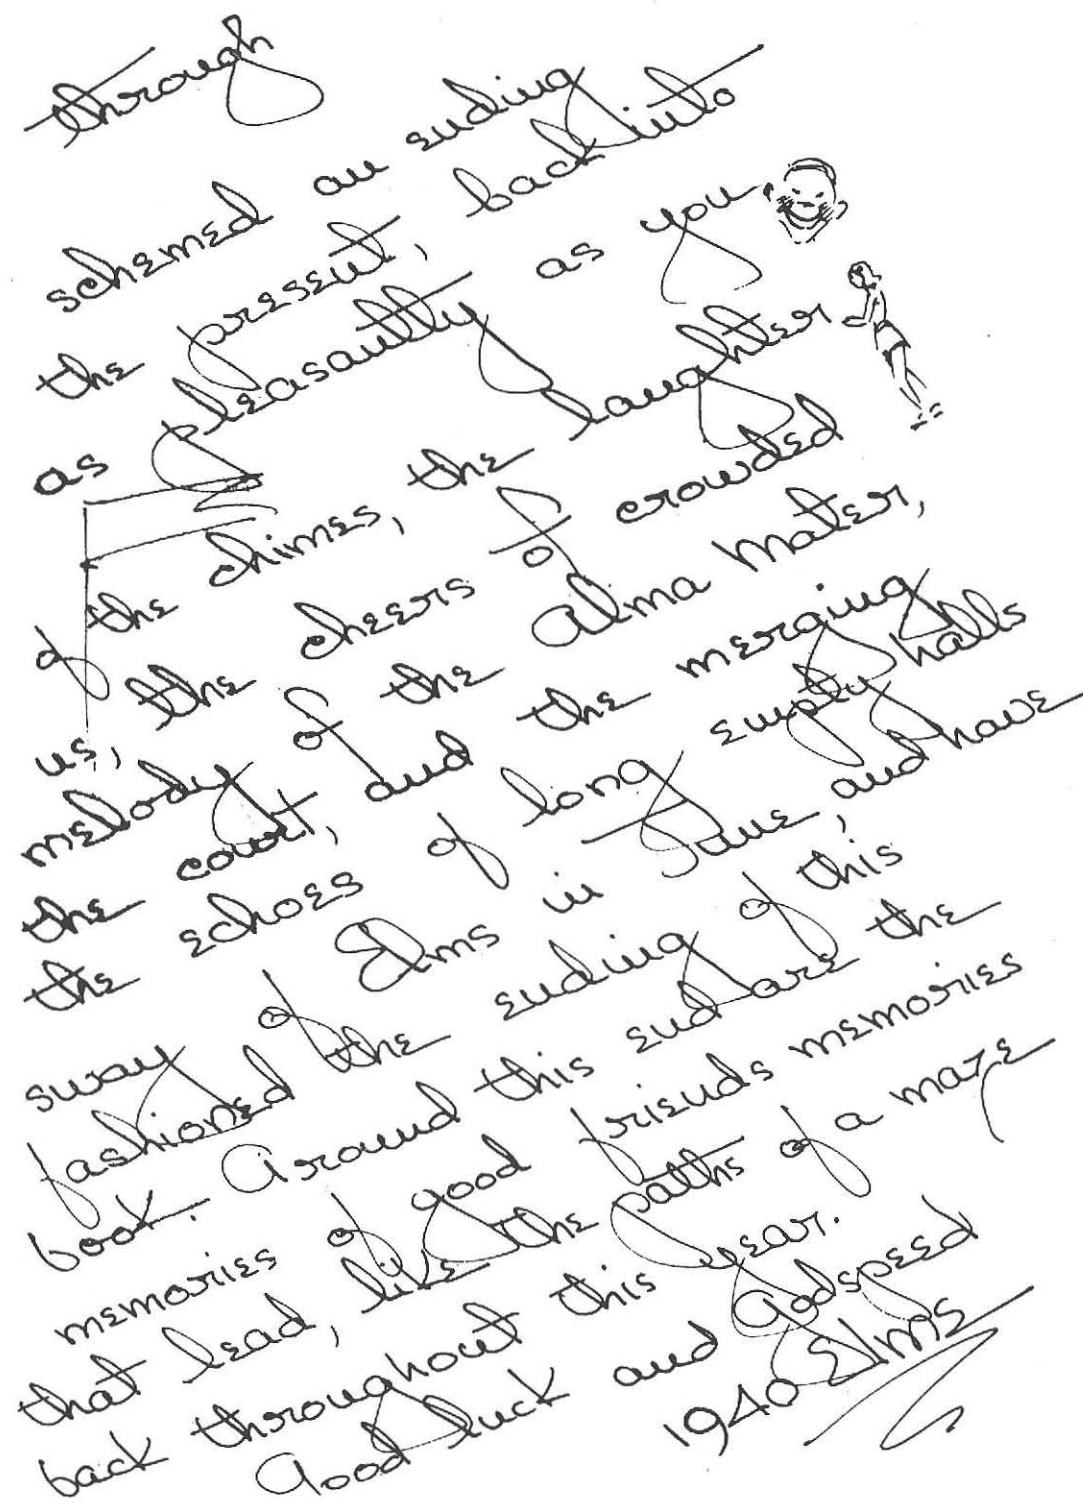 through
schemed an ending
the present, back into
as pleasantly as you
of the chimes, the laughter
us, the cheers of crowded
melody of the Alma Mater,
the court, and the merging
the echoes of long empty halls
sway of Elms in June, and have
fashioned the ending of this
book. Around this end are the
memories of good friends memories
that lead, like the paths of a maze
back throughout this year.
Good luck and Godspeed
1940 Elms